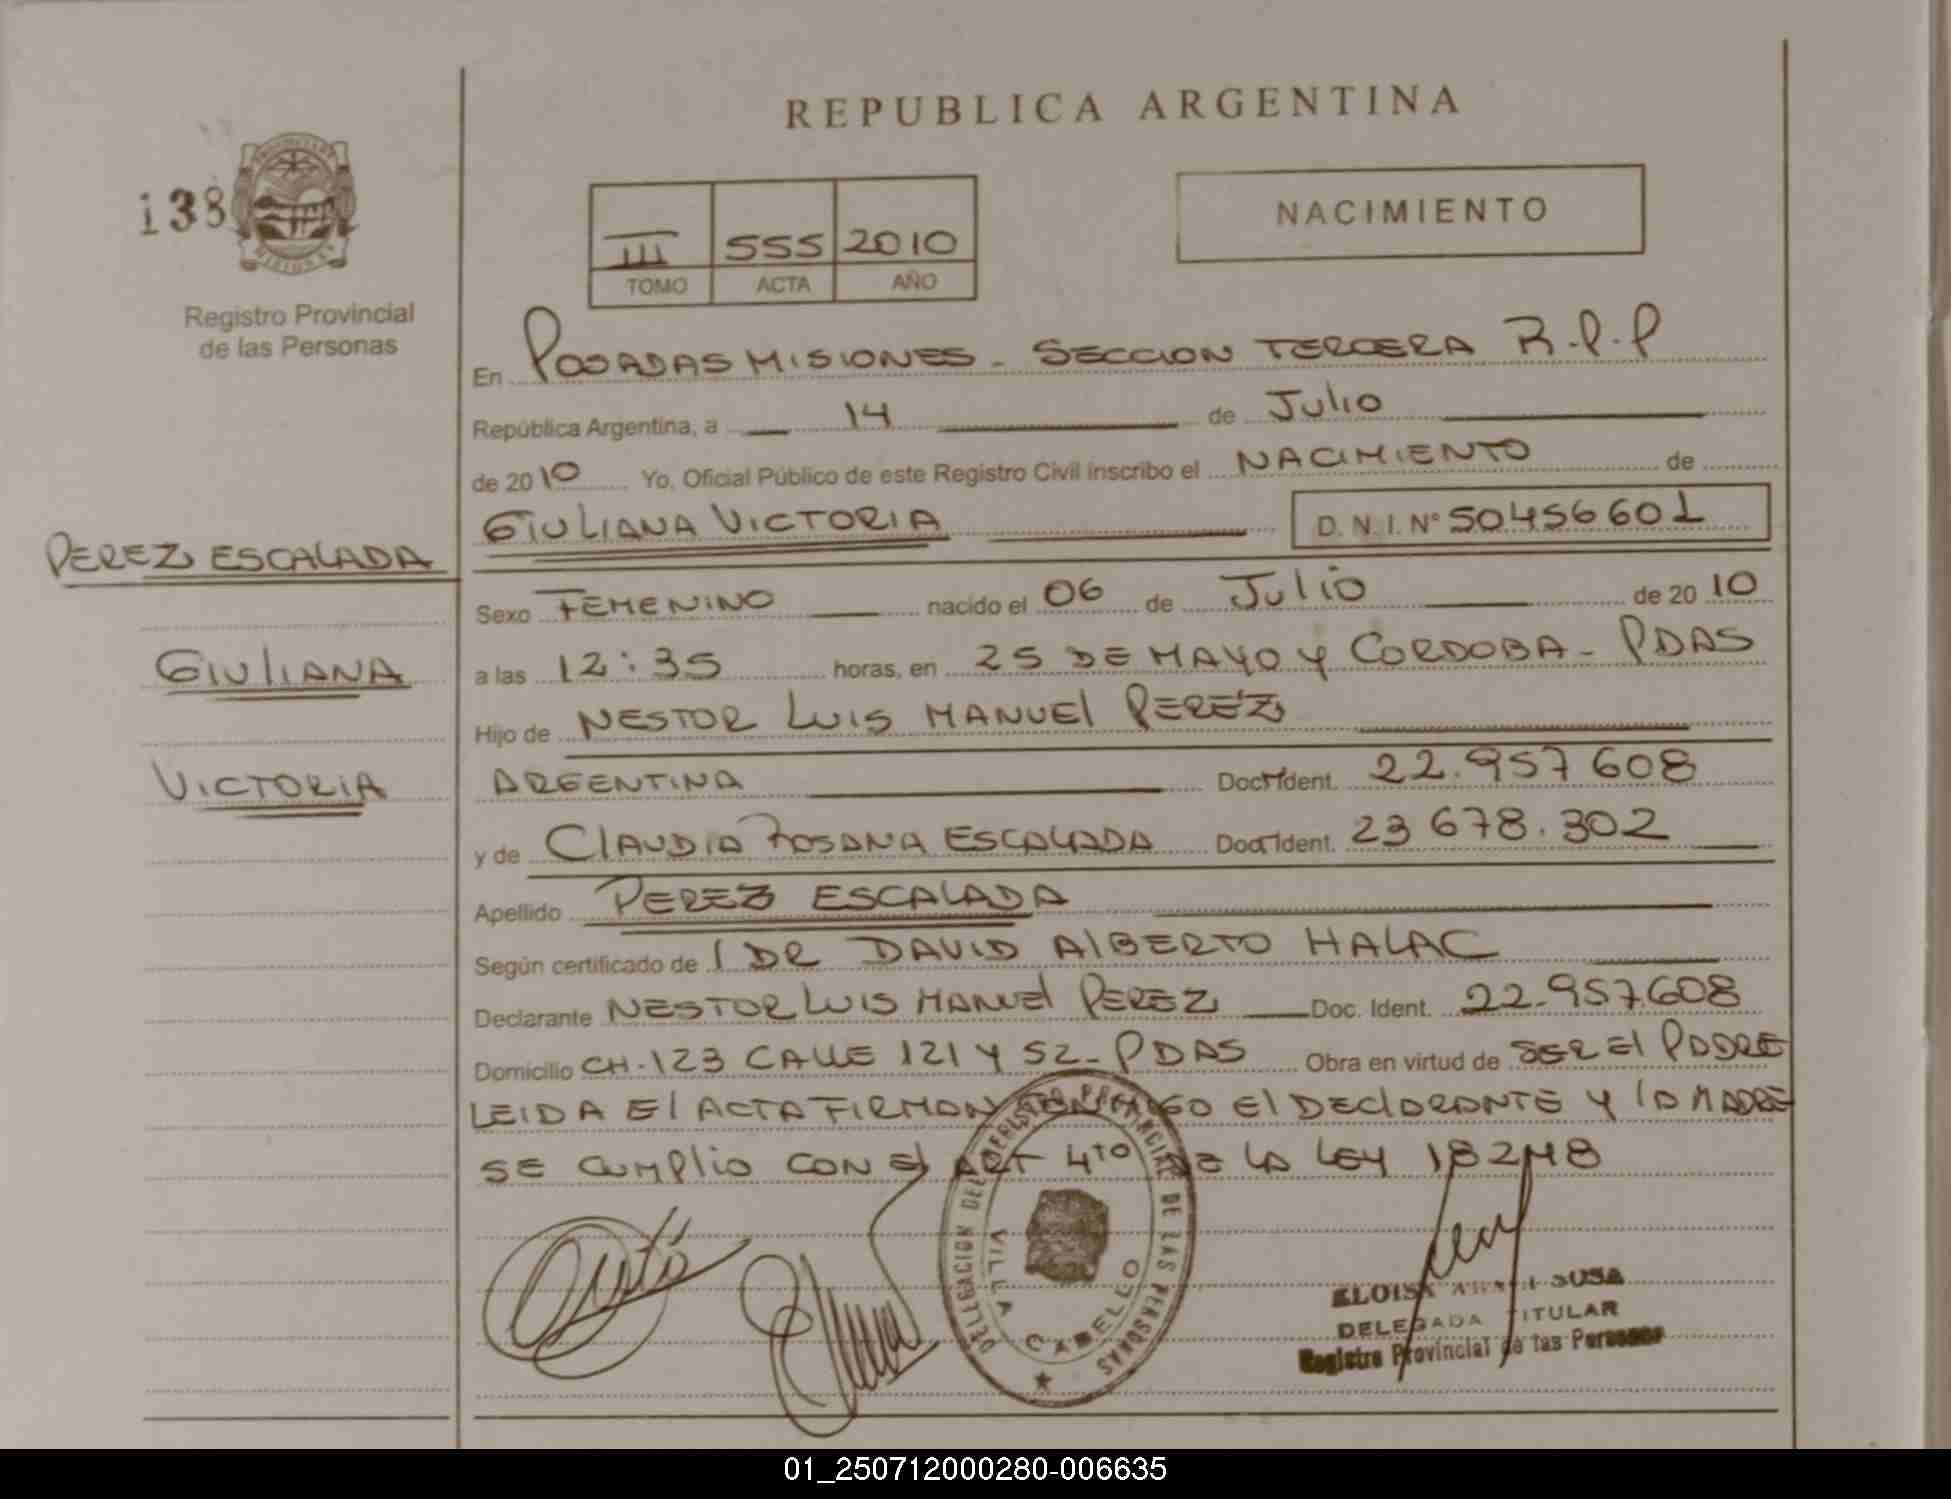 REPUBLICA ARGENTINA
138
PROVINCIA DE
MISIONES
Registro Provincial
de las Personas
III 555 2010
TOMO ACTA AÑO
NACIMIENTO
En POSADAS MISIONES - SECCION TERCERA R.P.P
República Argentina, a 14 de Julio
de 2010 Yo, Oficial Público de este Registro Civil inscribo el NACIMIENTO de
GIULIANA VICTORIA D.N.I. N° 50456601
PEREZ ESCALADA
GIULIANA
VICTORIA
Sexo FEMENINO nacido el 06 de Julio de 2010
a las 12:35 horas, en 25 DE MAYO Y CORDOBA - PDAS
Hijo de NESTOR LUIS MANUEL PEREZ
ARGENTINA Doc. Ident. 22.957608
y de CLAUDIA ROSANA ESCALADA Doc. Ident. 23678.302
Apellido PEREZ ESCALADA
Según certificado de l DR DAVID ALBERTO HALAC
Declarante NESTOR LUIS MANUEL PEREZ Doc. Ident. 22.957.608
Domicilio CH. 123 CALLE 121 Y 52 - PDAS Obra en virtud de SER El PADRE
LEIDA El ACTA FIRMAN CONMIGO El DECLARANTE Y lA MADRE
SE CUMPLIO CON El ART 4TO DE LA LEY 18248
DELEGACION DEL REGISTRO PROVINCIAL DE LAS PERSONAS
VILLA CABELLO
ELOISA SOSA
DELEGADA TITULAR
Registro Provincial de las Personas
01_250712000280-006635